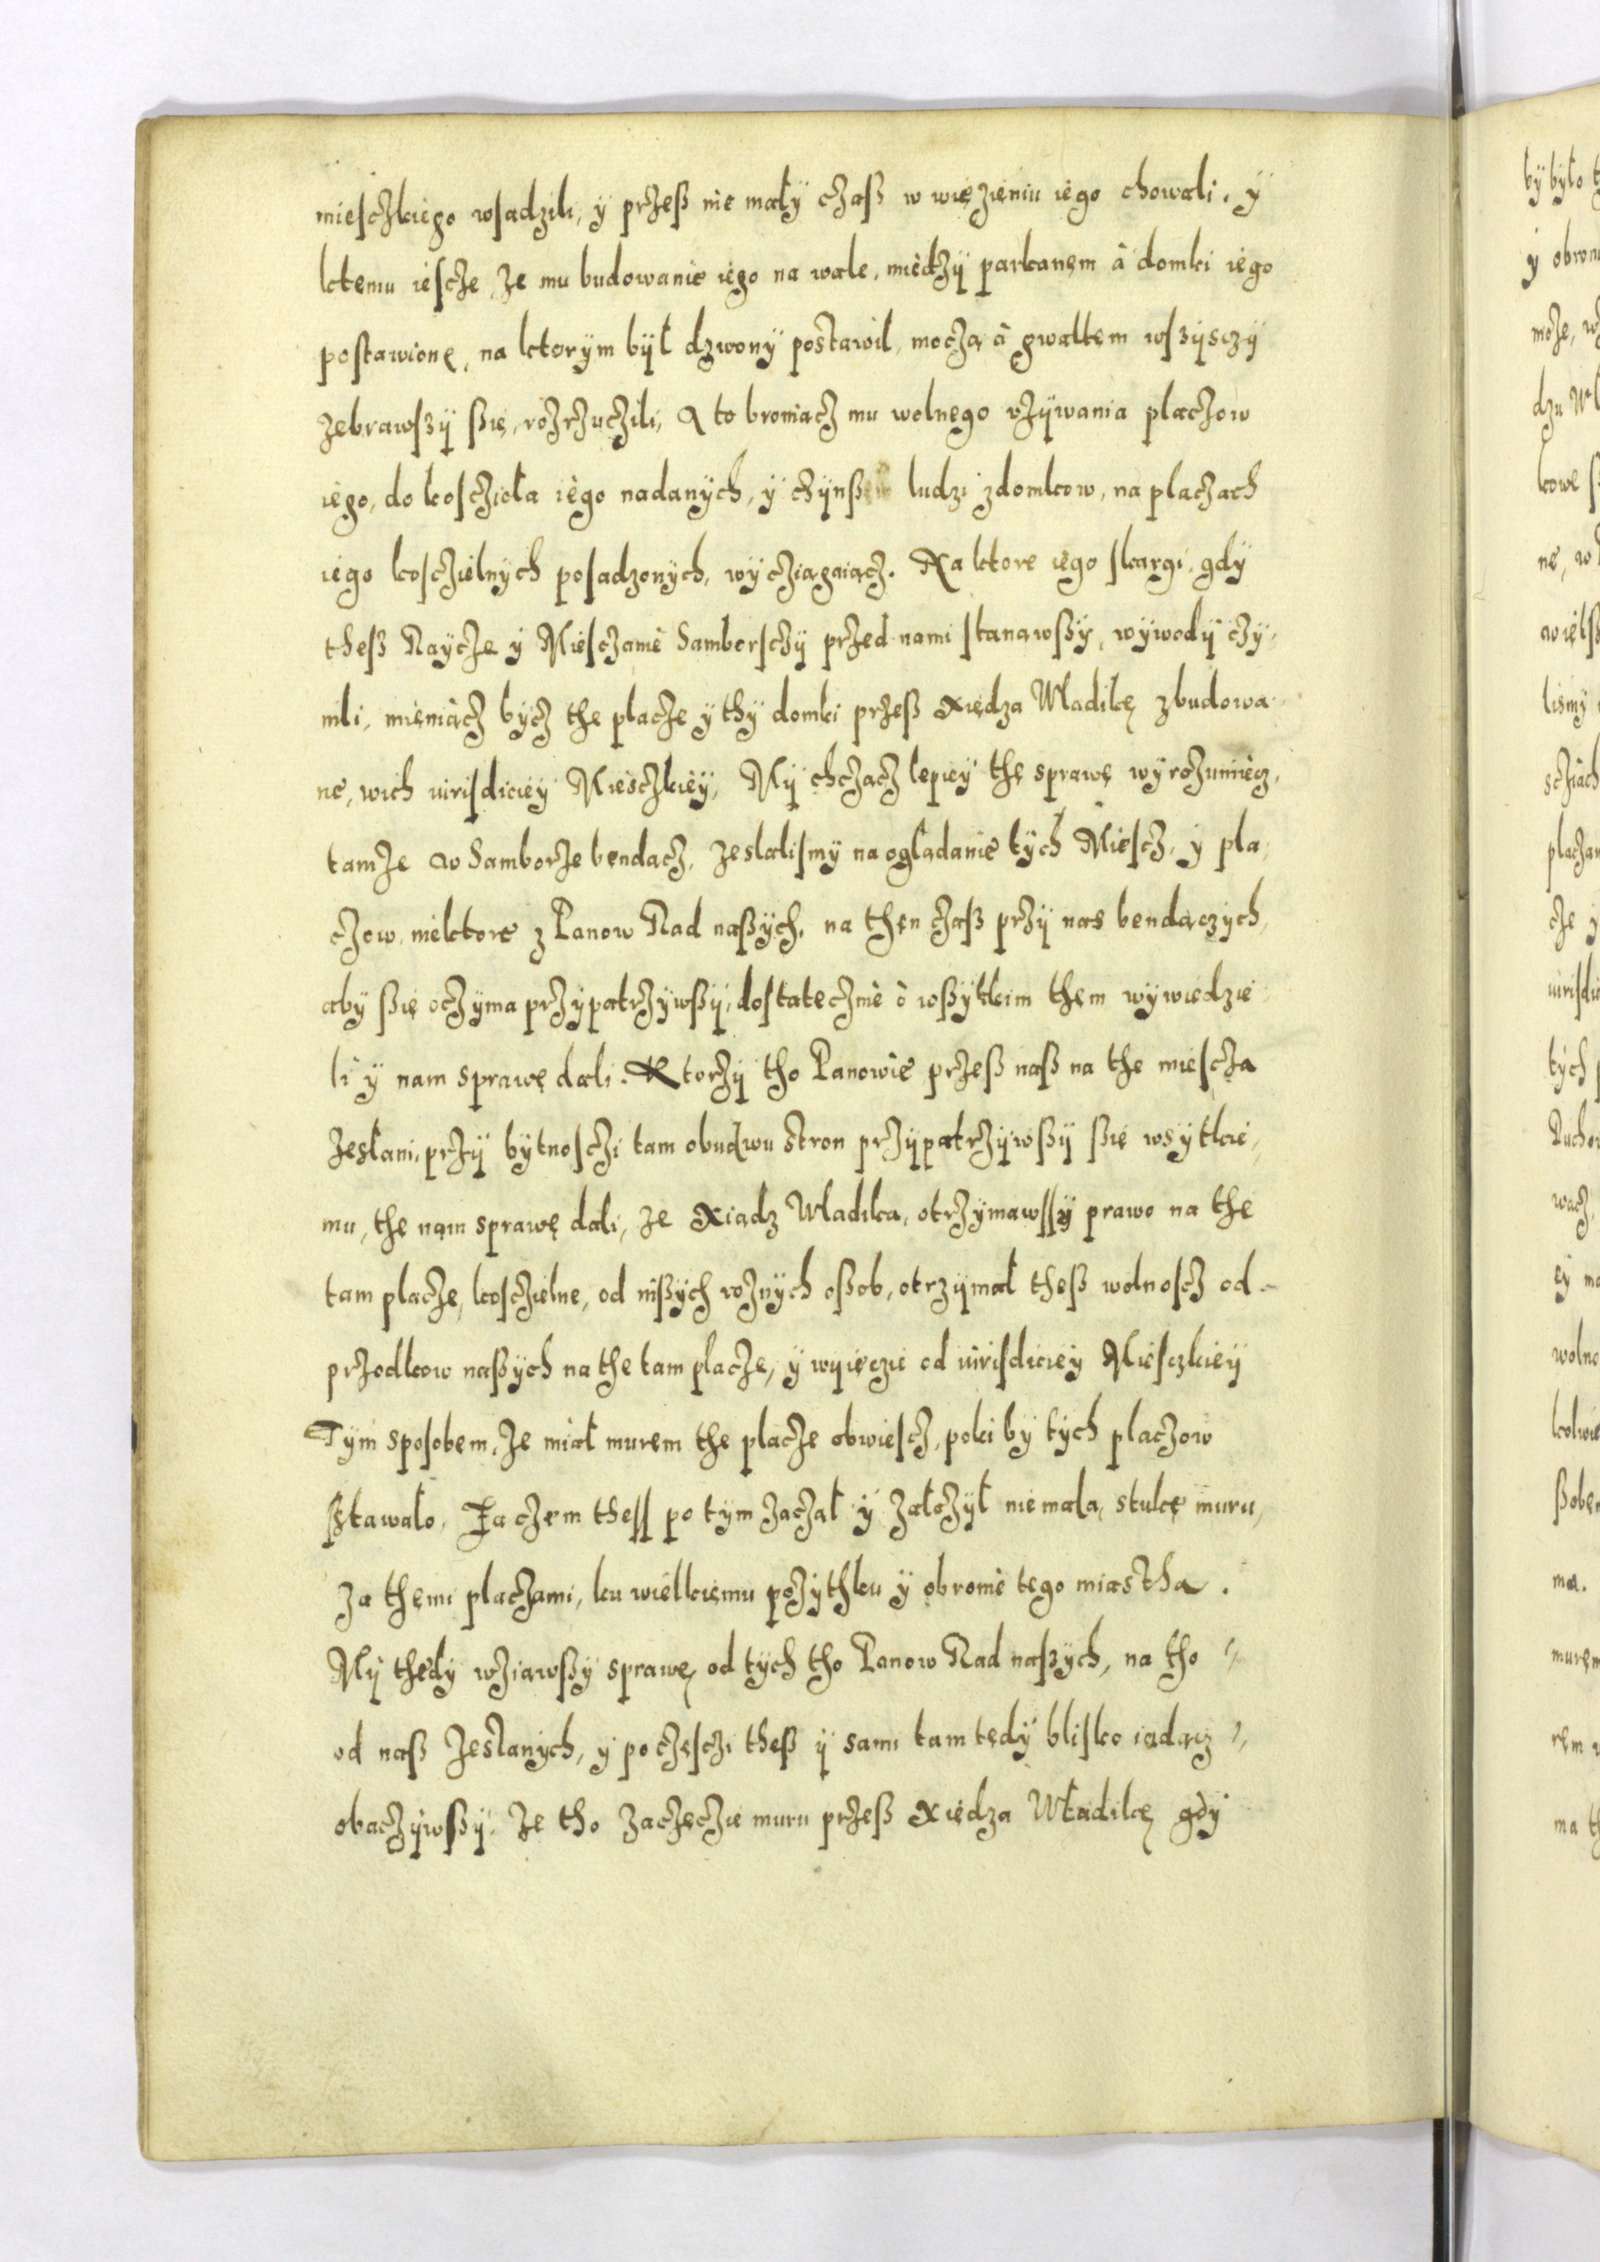 miesczkiego wsadzili, y przeß nie mały czaß w więzieniu iego chowali. y
ktemu iescze, ze mu budowanie iego na wale, miedzy parkanem á domki iego
postawione, na ktorym był dzwony postawił, moczą á gwałtem wszysczy
zebrawszy ßię, rozrzuczili, A to broniącz mu wolnego vzywania placzow
iego, do kosczioła iego nadanych, y czynß ludzi z domkow, na placzach
iego kosczielnych posadzonych, wycziągaiącz. Na ktore iego skargi, gdy
theß Raycze y Miesczanie Samborsczy przed nami stanawßy, wywody czy-
nili, mieniącz bycz the placze y thy domki przeß xiędza Władikę zbudowa-
ne, w ich iurisdiciey Miesczkiey, My chcząc lepiey thę sprawę wyrozumiecz,
tamze w Samborze bendącz, zesłalismy na oglądanie tych Miescz, y pla-
czow, niektore z Panow Rad naßych, na then czaß przy nas bendączych,
aby ßię oczyma przypatrzywßy, dostatecznie o wßytkim them wywiedzie-
li y nam sprawę dali. Ktorzy tho Panowie przeß naß na the miescza
zesłani, przy bytnosczi tam obudwu stron przypatrzywßy ßię wsytkie-
mu, thę nam sprawę dali, ze xiądz Władika, otrzymawssy prawo na the
tam placze, kosczielne, od inßych roznych oßob, otrzymał theß wolnoscz od
przodkow naßych na the tam placze, y wyięcie od iurisdiciey Miesczkiey
Tym sposobem, ze miał murem the placze obwiescz, poki by tych placzow
sstawało. Zaczem thess po tym zaczał y załozył niemałą stukę muru,
za themi placzami, ku wielkiemu pozythku y obronie tego miastha.
My thedy wziawßy sprawę od tych tho Panow Rad naszych, na tho
od naß zesłanych, y po częsczi theß y sami tamtędy blisko iadącz
obaczywßy, ze tho zaczęczie muru przeß xiędza Władikę gdy